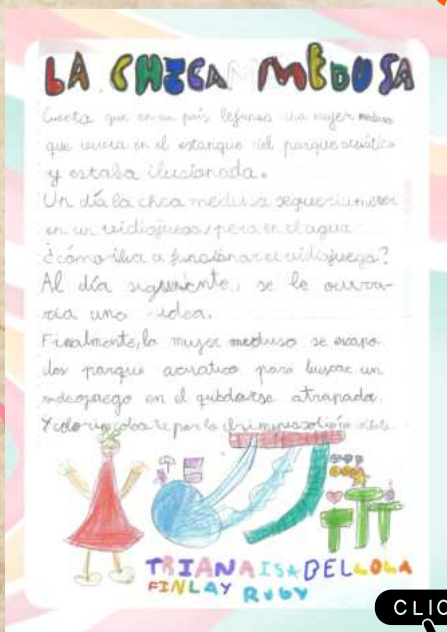 LA CHICA MEDUSA
Cuenta que en un país lejano una mujer medusa
que vivía en el estanque del parque acuático
y estaba ilusionada.
Un día la chica medusa se quería meter
en un vidiojuego, pero en el agua
¿cómo iba a funcionar el vidiojuego?
Al día siguiente, se le ocurri-
ría una idea.
Finalmente, la mujer medusa se escapo
del parque acuatico para buscar un
videojuego en el quedarse atrapada.
Y colorin colorado por la
TRIANA ISABEL LOLA
FINLAY RUBY
CLIC